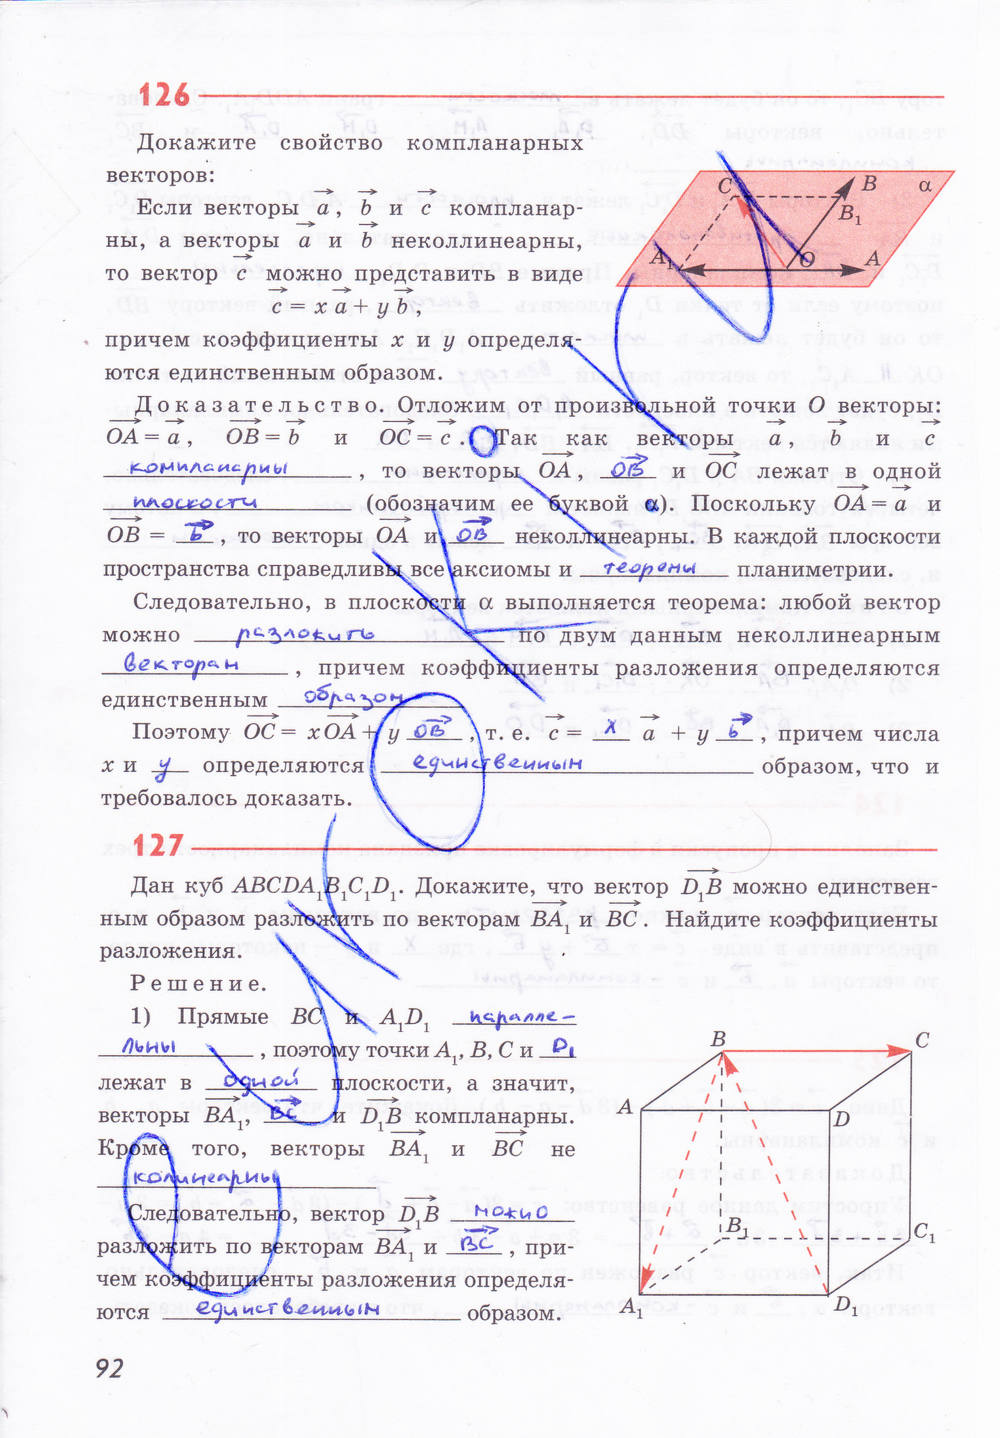 126
Докажите свойство компланарных
векторов:
Если векторы a, b и c компланар-
ны, а векторы a и b неколлинеарны,
то вектор c можно представить в виде
c = x a + y b,
причем коэффициенты x и y определя-
ются единственным образом.
C B α
B₁
A₁ O A
Доказательство. Отложим от произвольной точки O векторы:
OA = a, OB = b и OC = c. Так как векторы a, b и c
компланарны, то векторы OA, OB и OC лежат в одной
плоскости (обозначим ее буквой α). Поскольку OA = a и
OB = b, то векторы OA и OB неколлинеарны. В каждой плоскости
пространства справедливы все аксиомы и теоремы планиметрии.
Следовательно, в плоскости α выполняется теорема: любой вектор
можно разложить по двум данным неколлинеарным
векторам, причем коэффициенты разложения определяются
единственным образом
Поэтому OC = xOA + y OB, т. е. c = x a + y b, причем числа
x и y определяются единственным образом, что и
требовалось доказать.
127
Дан куб ABCDA₁B₁C₁D₁. Докажите, что вектор D₁B можно единствен-
ным образом разложить по векторам BA₁ и BC. Найдите коэффициенты
разложения.
Решение.
1) Прямые BC и A₁D₁ паралле-
льны, поэтому точки A₁, B, C и D₁
лежат в одной плоскости, а значит,
векторы BA₁, BC и D₁B компланарны.
Кроме того, векторы BA₁ и BC не
колинеарны
Следовательно, вектор D₁B можно
разложить по векторам BA₁ и BC, при-
чем коэффициенты разложения определя-
ются единственным образом.
B C
A D
B₁ C₁
A₁ D₁
92